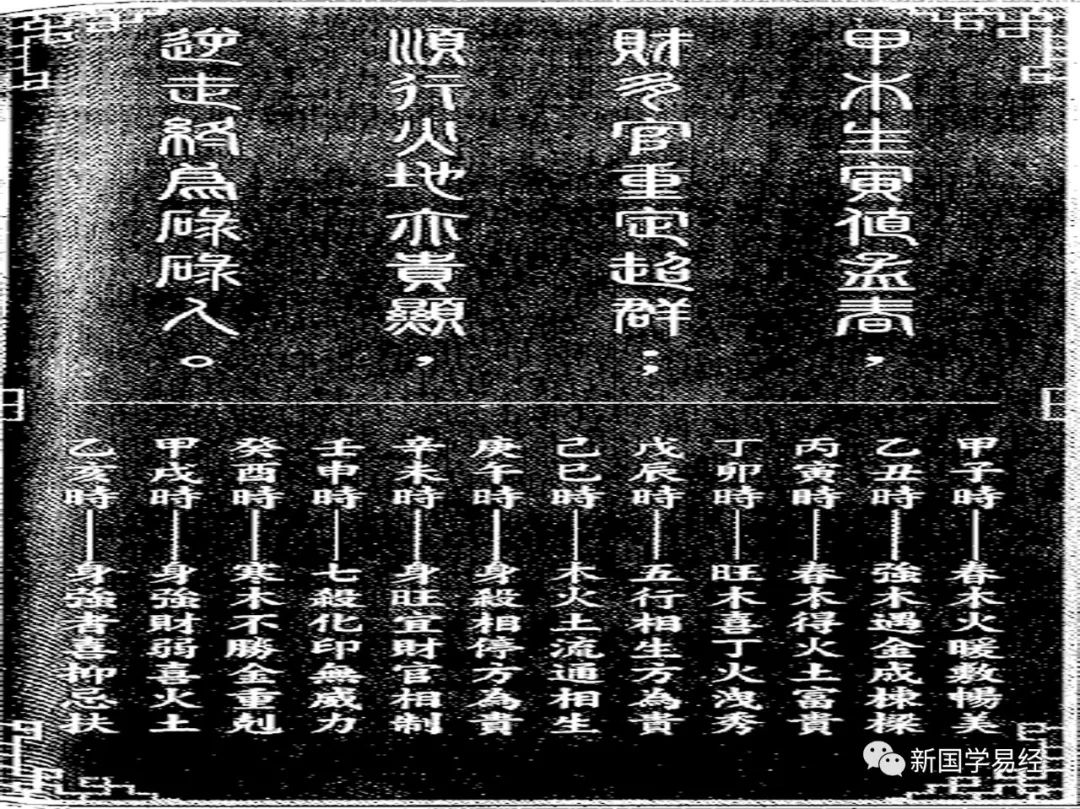 甲木生寅值孟春，
財多官重定超群；
順行火地亦貴顯，
逆走終為碌碌人。
甲子時——春木火暖敷暢美
乙丑時——強木遇金成棟樑
丙寅時——春木得火土富貴
丁卯時——旺木喜丁火洩秀
戊辰時——五行相生方為貴
己巳時——木火土流通相生
庚午時——身殺相停方為貴
辛未時——身旺宜財官相制
壬申時——七殺化印無威力
癸酉時——寒木不勝金重剋
甲戌時——身強財弱喜火土
乙亥時——身強者喜抑忌扶
新国学易经